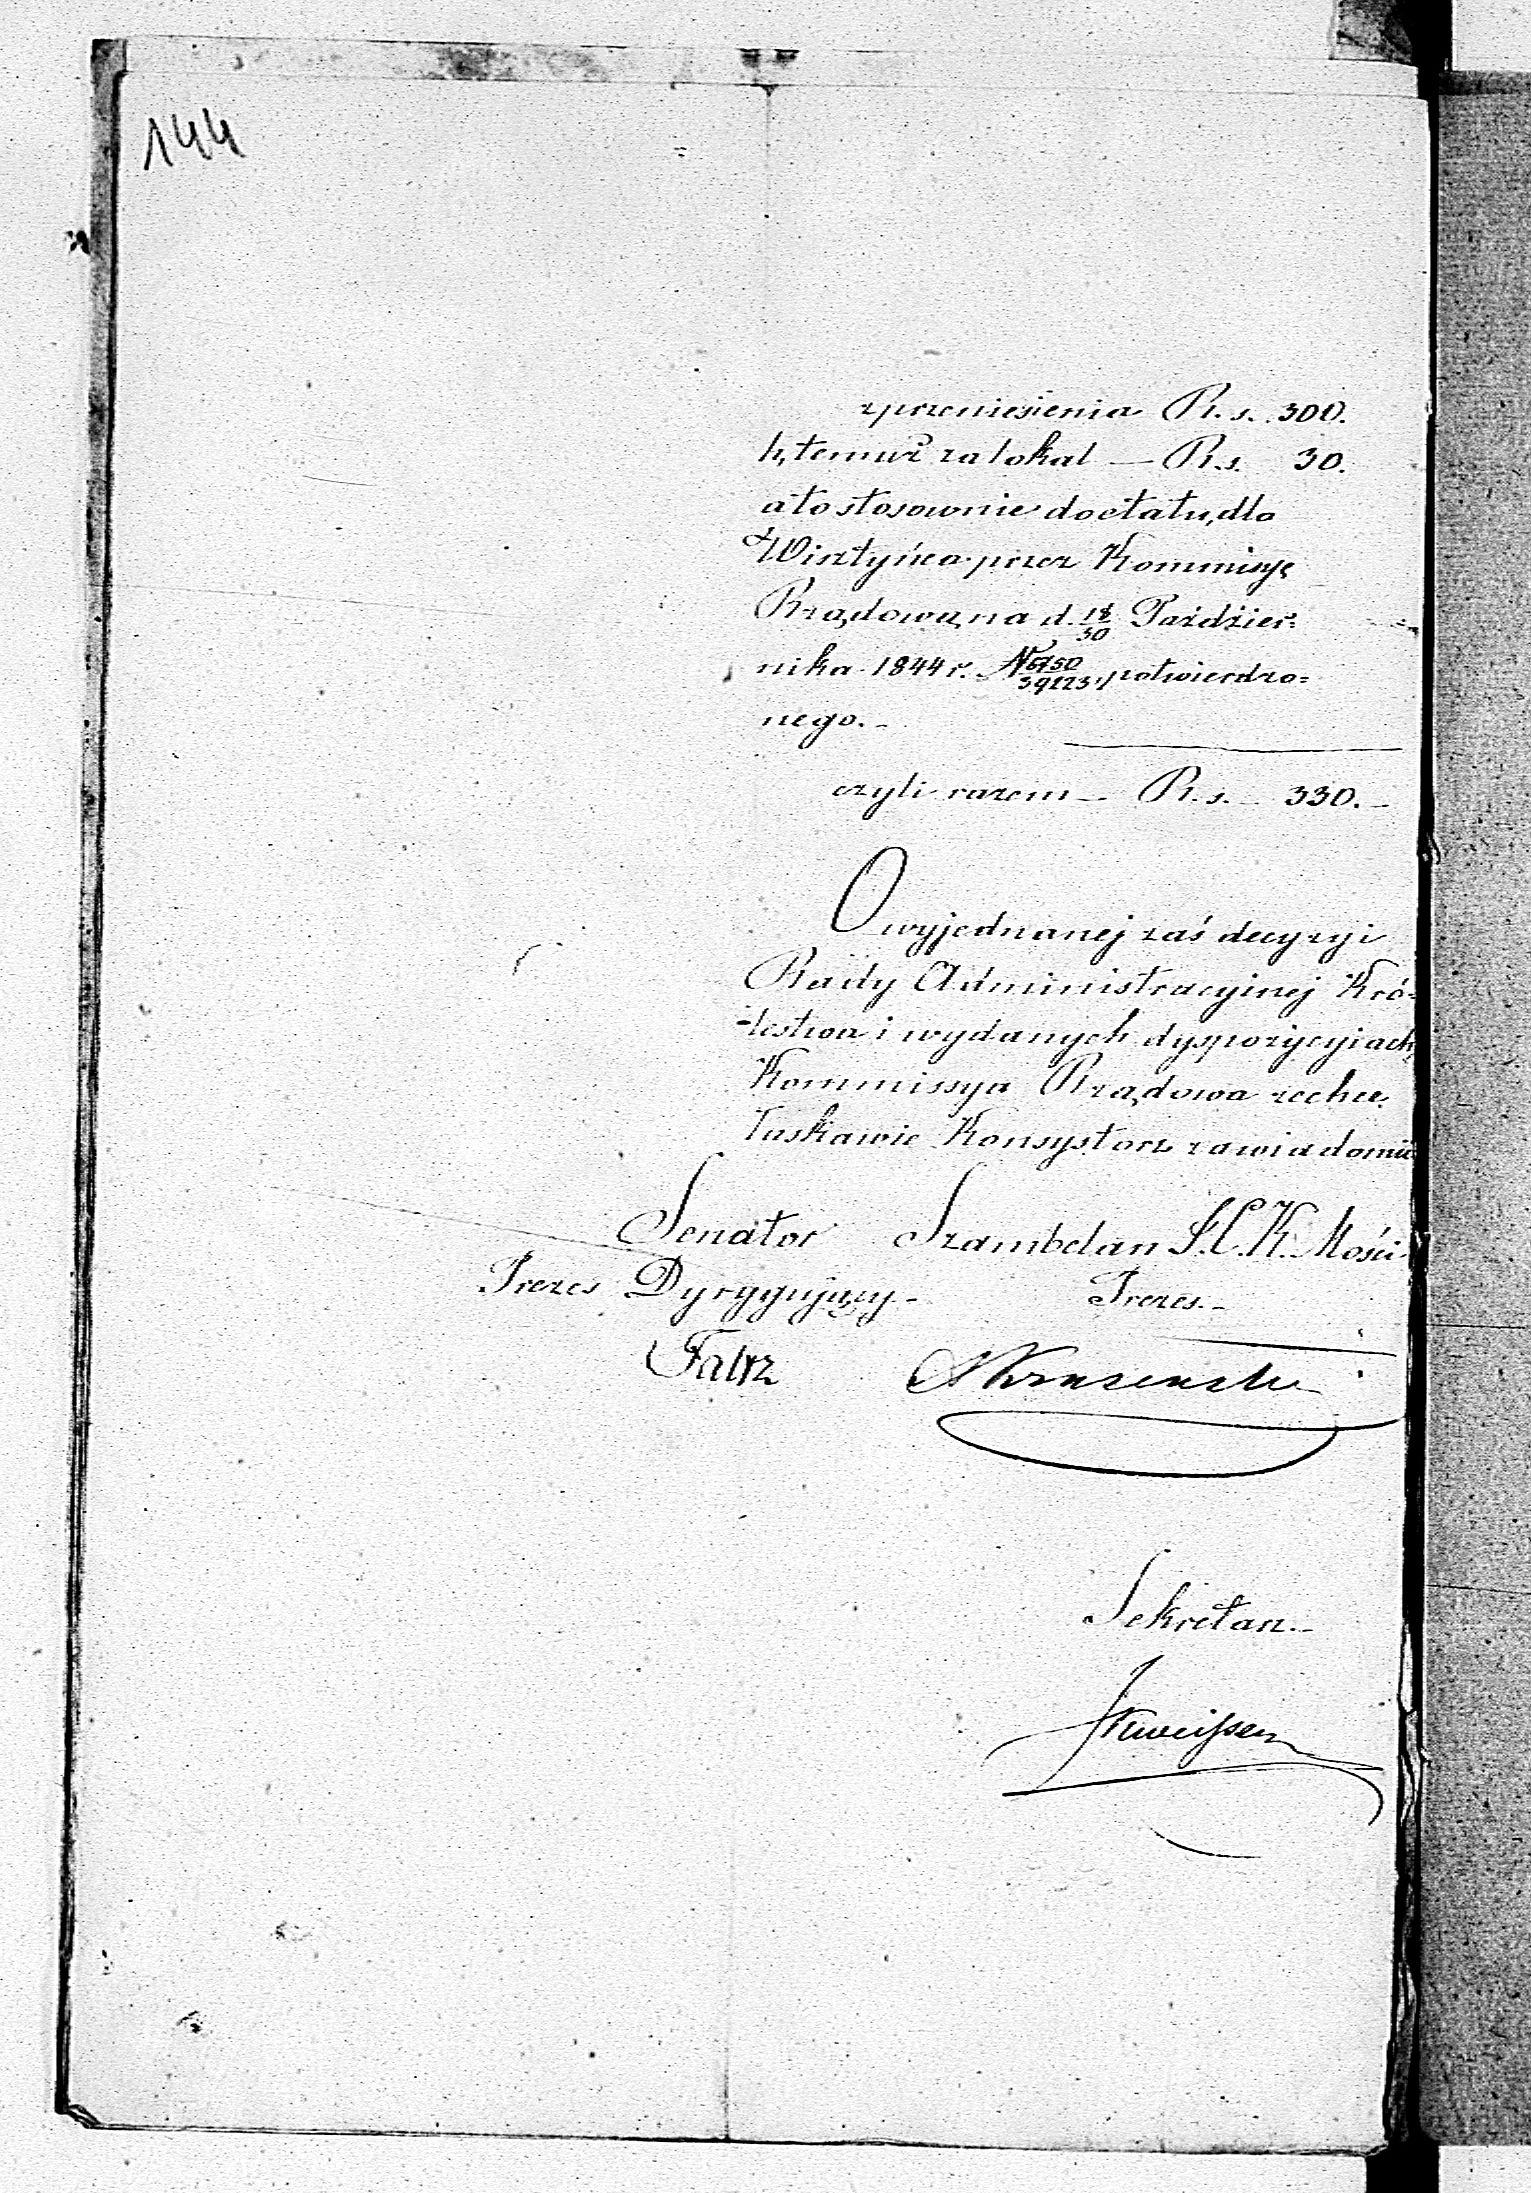 144
z przeniesienia R. s. 300.
k,temuż za lokal — R.s. 30.
a to stosownie do etatu, dla
Wisztyńca przez Kommisyę
Rządową na d. 18/30 Paździer=
nika 1844 r. N potwierdzo=
nego. -
czyli razem — R. s. — 330. -
O wyjednanej zaś decyzyi
Rady Administracyjnej Kró=
=lestwa i wydanych dyspozycyiach,
Kommissya Rządowa zechce
łaskawie Konsystorz zawiadomić
Senator Szambelan J. C. K. Mości
Prezes Dyrygujący - Prezes. -
Faltz
Sekretarz. -